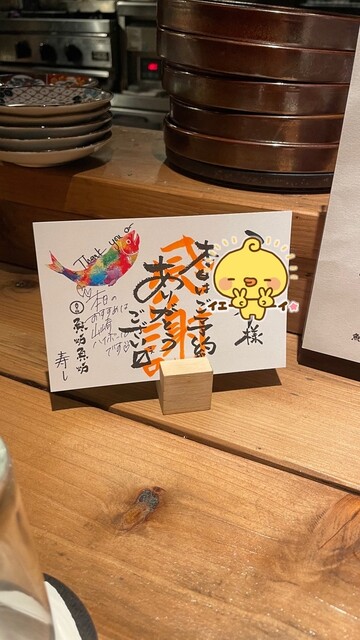 様
本日はご予約
ありがとう
ござい〼
感謝
Thank you
本日の
おすすめは
山崎
ハイボール
です
魚坊魚坊
寿し
イエーイ
魚